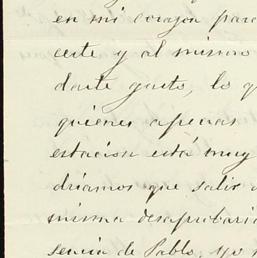 en mi corazon para
este y al mismo
darte gusto, lo q
quienes apenas
estacion está muy
dríamos que salir
misma desaprobació
sencia de Pablo, yo